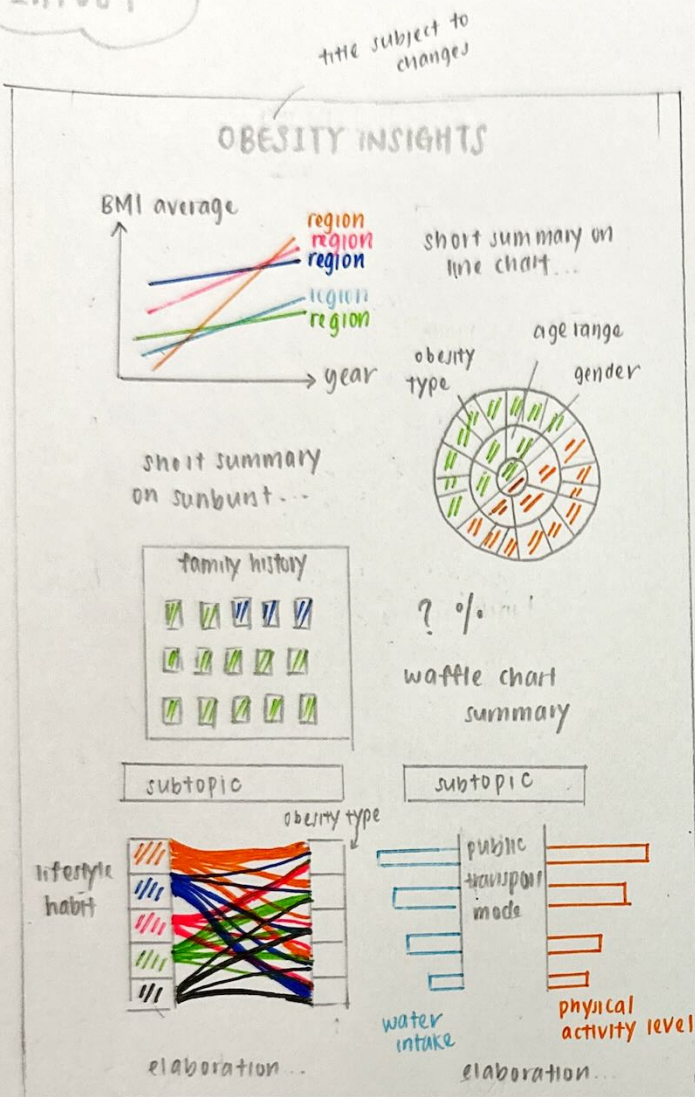 title subject to
changes
OBESITY INSIGHTS
BMI average
region
region
region
region
region
year
short summary on
line chart...
obesity
type
age range
gender
short summary
on sunburst...
family history
? %
waffle chart
summary
subtopic
subtopic
obesity type
lifestyle
habit
public
transport
mode
water
intake
physical
activity level
elaboration...
elaboration...